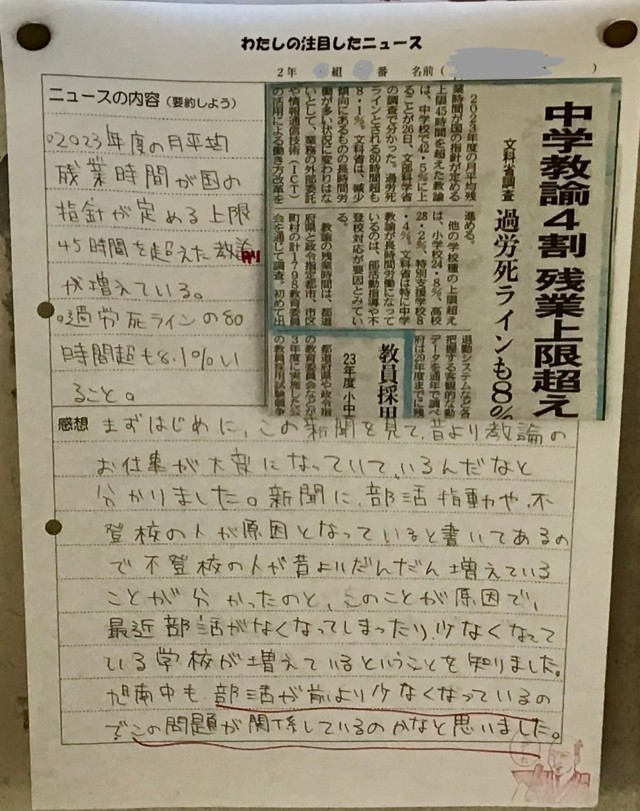 わたしの注目したニュース
2年 組 番 名前( )
ニュースの内容(要約しよう)
○2023年度の月平均
残業時間が国の
指針が定める上限
45時間を超えた教諭
が増えている。
○過労死ラインの80
時間超も8.1%い
ること。
中学教諭4割 残業上限超え
文科省調査 過労死ラインも8%
2023年度の月平均残
業時間が国の指針が定める
上限45時間を超えた教諭
は、中学校で42・5%に上
ることが26日、文部科学省
の調査で分かった。過労死
ラインとされる80時間超も
8・1%。文科省は、減少
傾向にあるものの長時間労
働が多い状況に変わりはな
いとして、業務の外部委託
や情報通信技術(ICT)
の活用による働き方改革を
進める。
他の学校種の上限超え
は、小学校24・8%、高校
28・2%、特別支援学校8
・4%。文科省は特に中学
教諭が長時間労働になって
いるのは、部活動指導や不
登校対応が要因とみてい
る。
教諭の残業時間は、都道
府県と政令指定都市、市区
町村の計1798教育委員
会を通して調査。初めて出
退勤システムなど客
把握する客観的な勤
データを通年で調べ
府は29年度までに残
教員採用
23年度 小中
都道府県や政令指
の教育委員会などが
3年度に実施した公
の教員採用試験の競争
感想 まずはじめに、この新聞を見て、昔より教諭の
お仕事が大変になっていて、いるんだなと
分かりました。新聞に、部活指動や、不
登校の人が原因となっていると書いてあるの
で不登校の人が昔よりだんだん増えている
ことが分かったのと、このことが原因で、
最近部活がなくなってしまったり、少なくなって
ている学校が増えているということを知りました。
旭南中も部活が前より少なくなっているの
で、この問題が関係しているのかなと思いました。